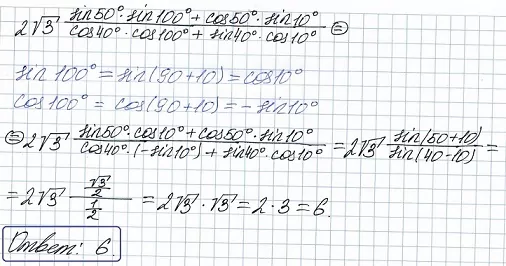 2√3 (sin50°·sin100° + cos50°·sin10°)/(cos40°·cos100° + sin40°·cos10°) ⊜
sin100° = sin(90+10) = cos10°
cos100° = cos(90+10) = -sin10°
⊜ 2√3 (sin50°·cos10° + cos50°·sin10°)/(cos40°·(-sin10°) + sin40°·cos10°) = 2√3 sin(50+10)/sin(40-10) =
= 2√3 (√3/2)/(1/2) = 2√3·√3 = 2·3 = 6.
Ответ: 6.